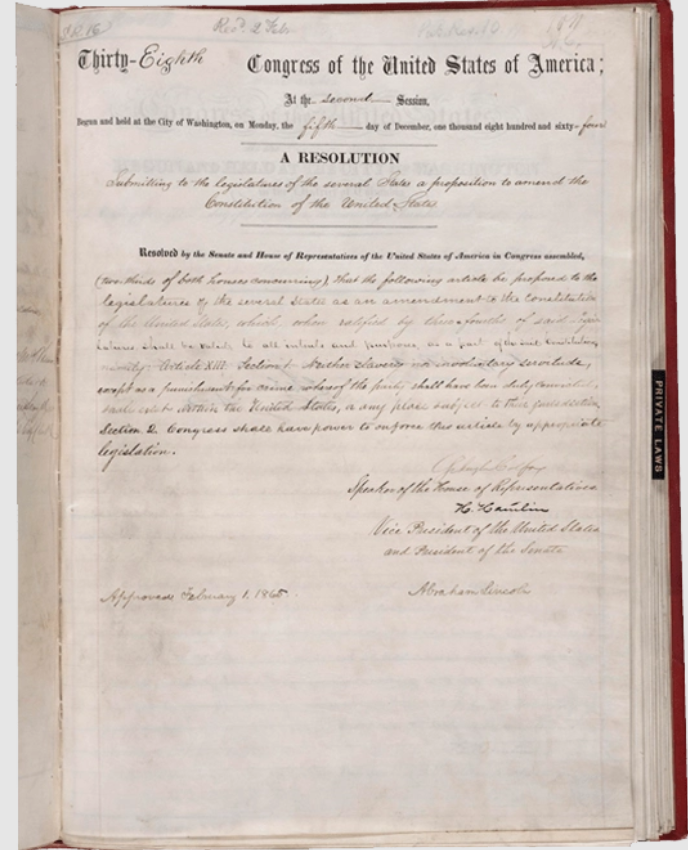 S.R. 16
Rec'd. 2 Feb.
Thirty-Eighth Congress of the United States of America;
At the second Session,
Begun and held at the City of Washington, on Monday, the fifth day of December, one thousand eight hundred and sixty-four
A RESOLUTION
Submitting to the legislatures of the several States a proposition to amend the
Constitution of the United States.
Resolved by the Senate and House of Representatives of the United States of America in Congress assembled,
(two-thirds of both houses concurring), That the following article be proposed to the
legislatures of the several States as an amendment to the Constitution
of the United States, which, when ratified by three-fourths of said Legis-
latures, shall be valid, to all intents and purposes, as a part of the said Constitution,
namely: Article XIII. Section 1. Neither slavery nor involuntary servitude,
except as a punishment for crime whereof the party shall have been duly convicted,
shall exist within the United States, or any place subject to their jurisdiction.
Section 2. Congress shall have power to enforce this article by appropriate
legislation.
Schuyler Colfax
Speaker of the House of Representatives.
H. Hamlin
Vice President of the United States
and President of the Senate
Approved February 1. 1865. Abraham Lincoln
PRIVATE LAWS